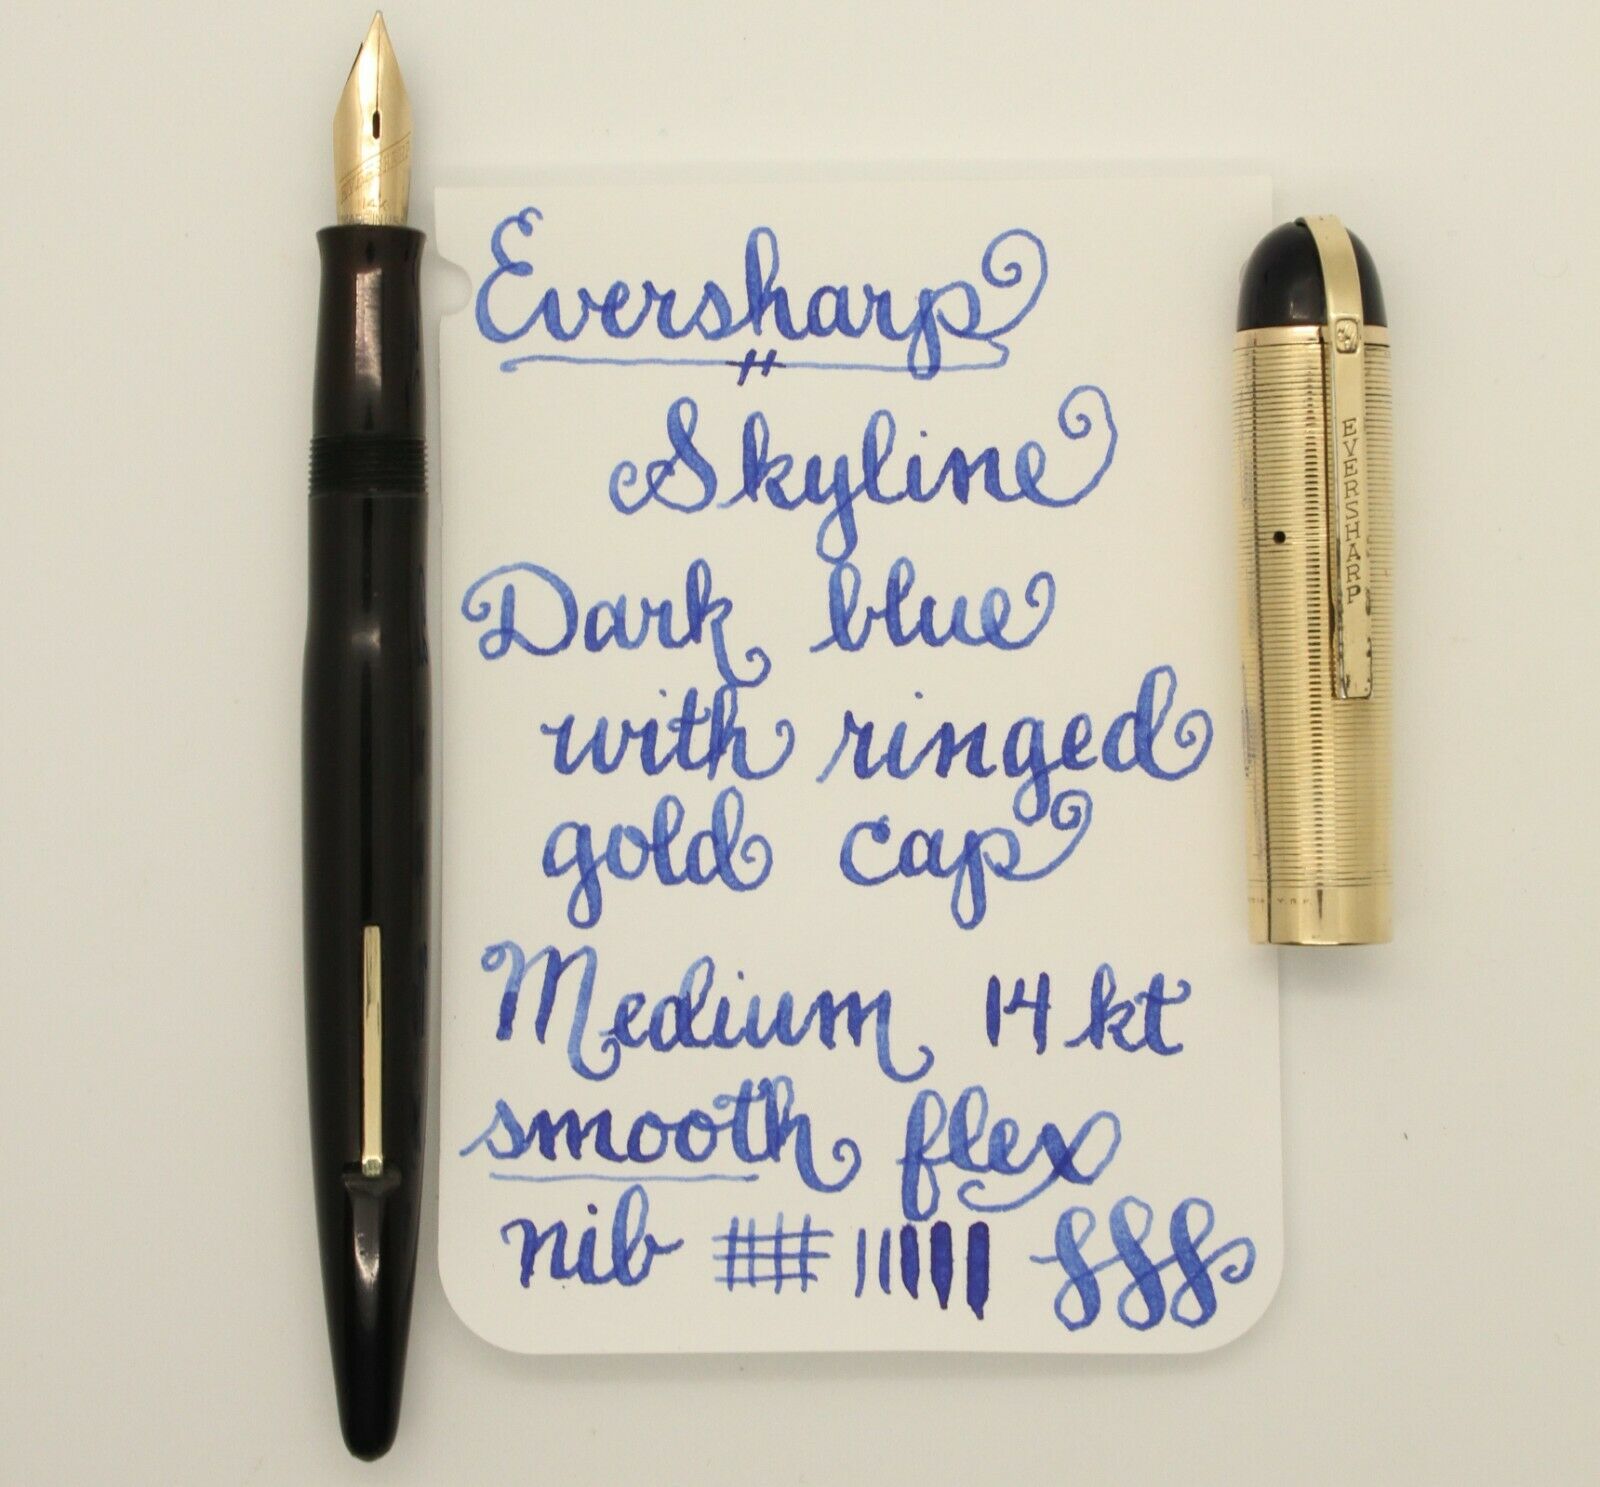 Eversharp
Skyline
Dark blue
with ringed
gold cap
Medium 14 kt
smooth flex
nib
EVERSHARP
EVERSHARP
14K